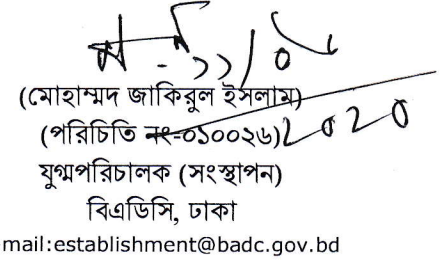 (মোহাম্মদ জাকিরুল ইসলাম)
(পরিচিতি নং-০১০০২৬)
যুগ্মপরিচালক (সংস্থাপন)
বিএডিসি, ঢাকা
mail:establishment@badc.gov.bd